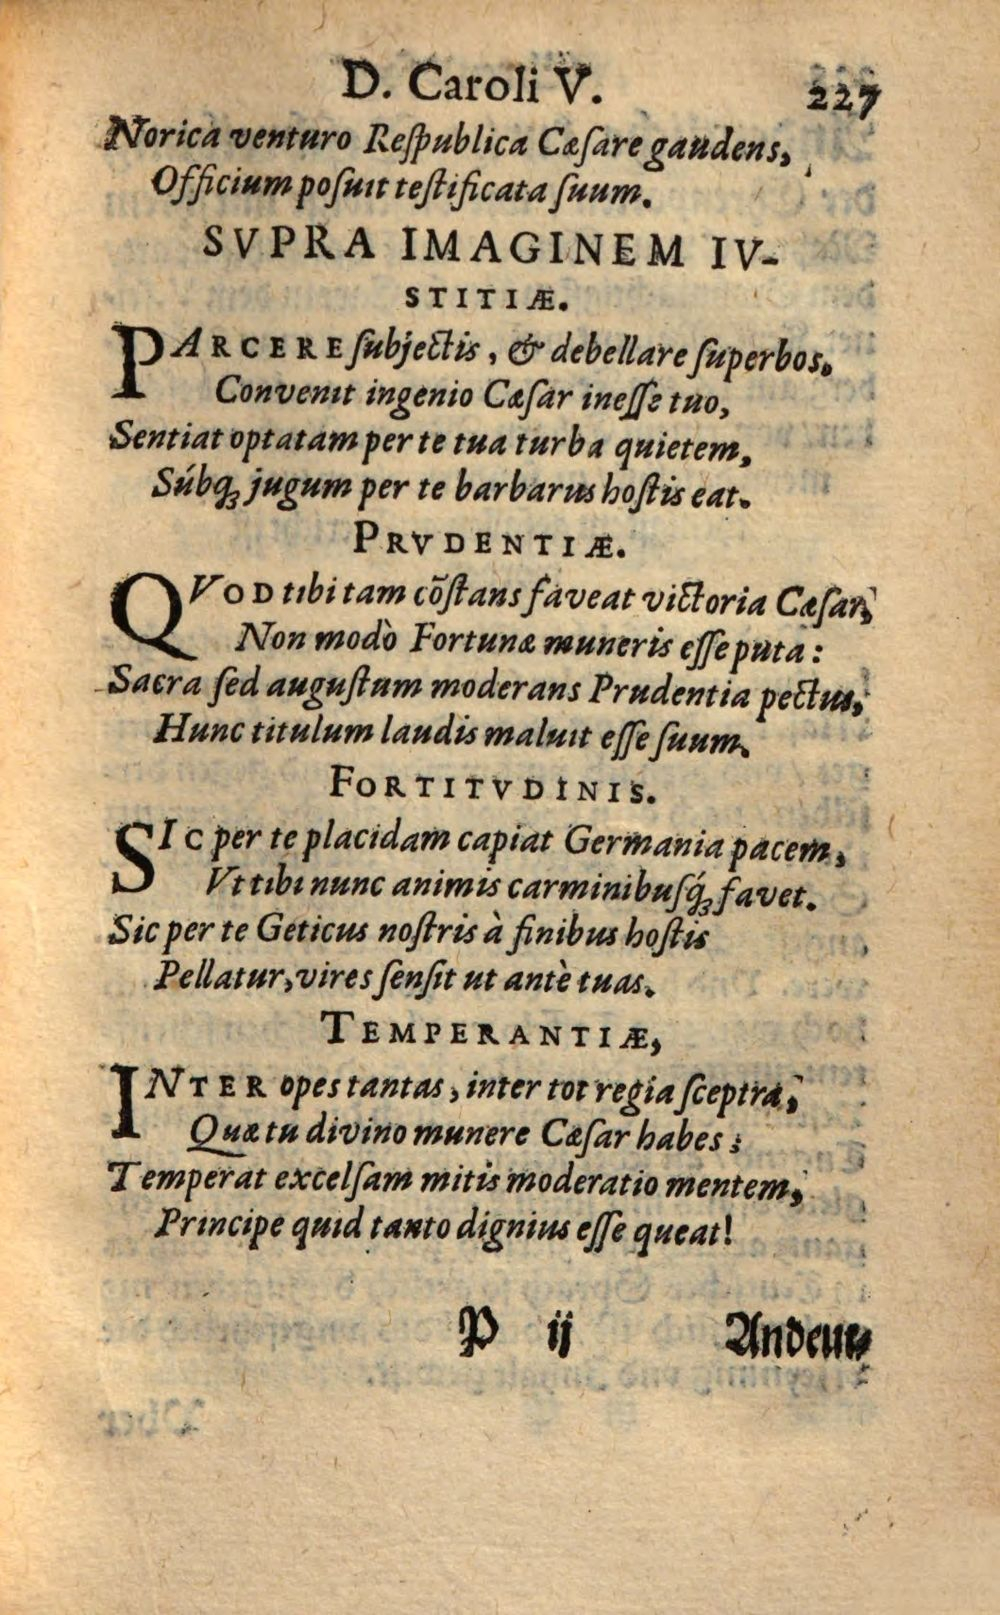 D. Caroli V. 227
Norica venturo Reſpublica Cæſare gaudens,
Officium poſuıt teſtificata ſuum.
SVPRA IMAGINEM IV-
STITIÆ.
PARCERE ſubjectis, & debellare ſuperbos.
Convenıt ingenio Cæſar ineſſe tuo,
Sentiat optatam per te tua turba quietem,
Súbq; jugum per te barbarus hoſtis eat.
PRVDENTIÆ.
QVOD tıbi tam cõſtans faveat victoria Cæſar,
Non modò Fortunæ muneris eſſe puta:
Sacra ſed auguſtum moderans Prudentia pectus,
Hunc titulum laudis maluıt eſſe ſuum.
FORTITVDINIS.
SIC per te placidam capiat Germania pacem,
Vt tıbı nunc animis carminibuſq́; favet.
Sic per te Geticus noſtris à finibus hoſtis
Pellatur, vires ſenſit ut antè tuas.
TEMPERANTIÆ,
INTER opes tantas, inter tot regia ſceptra,
Quæ tu divino munere Cæſar habes:
Temperat excelſam mitis moderatio mentem,
Principe quıd tanto dignius eſſe queat!
P ij Andeut⸗